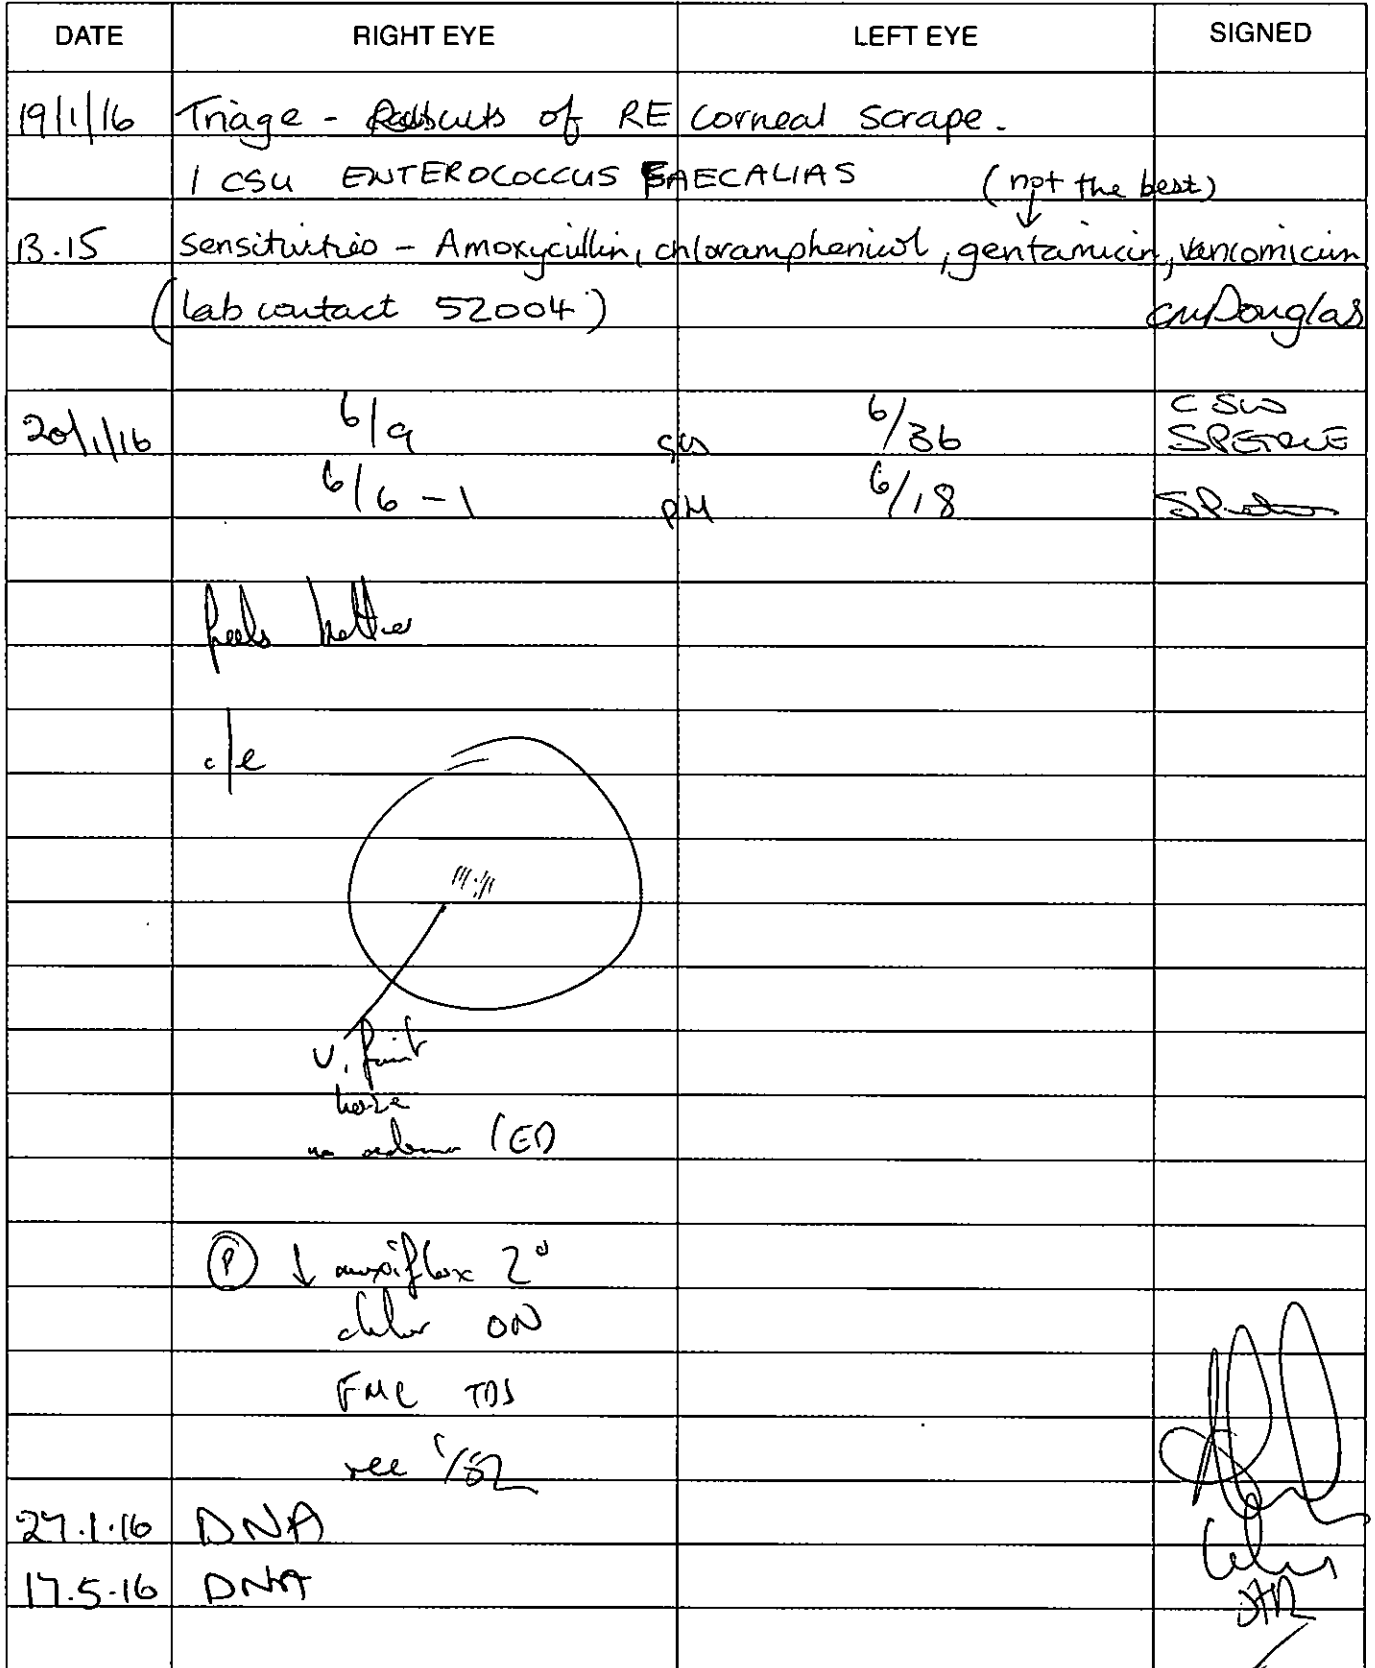 DATE RIGHT EYE LEFT EYE SIGNED
19/1/16 Triage - Results of RE corneal scrape.
1 CSU ENTEROCOCCUS FAECALIAS (not the best)
13.15 Sensitivities - Amoxycillin, chloramphenicol, gentamicin, vancomicin
(lab contact 52004) Douglas
20/1/16 6/9 6/36
6/6 -1 PH 6/18
feels better
c/e
v. faint
haze
no oedema (ED
Ⓟ ↓ moxiflox 2°
chlor ON
FML TDS
see 1/52
27.1.16 DNA
17.5.16 DNA